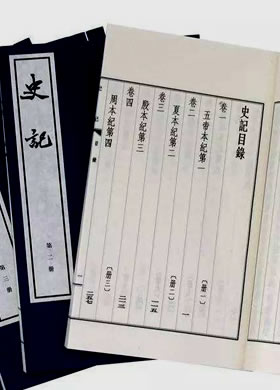 史記目錄
卷一
五帝本紀第一
〔册一〕
一
卷二
夏本紀第二
卷三
殷本紀第三
卷四
周本紀第四
史記
第二冊
第三冊